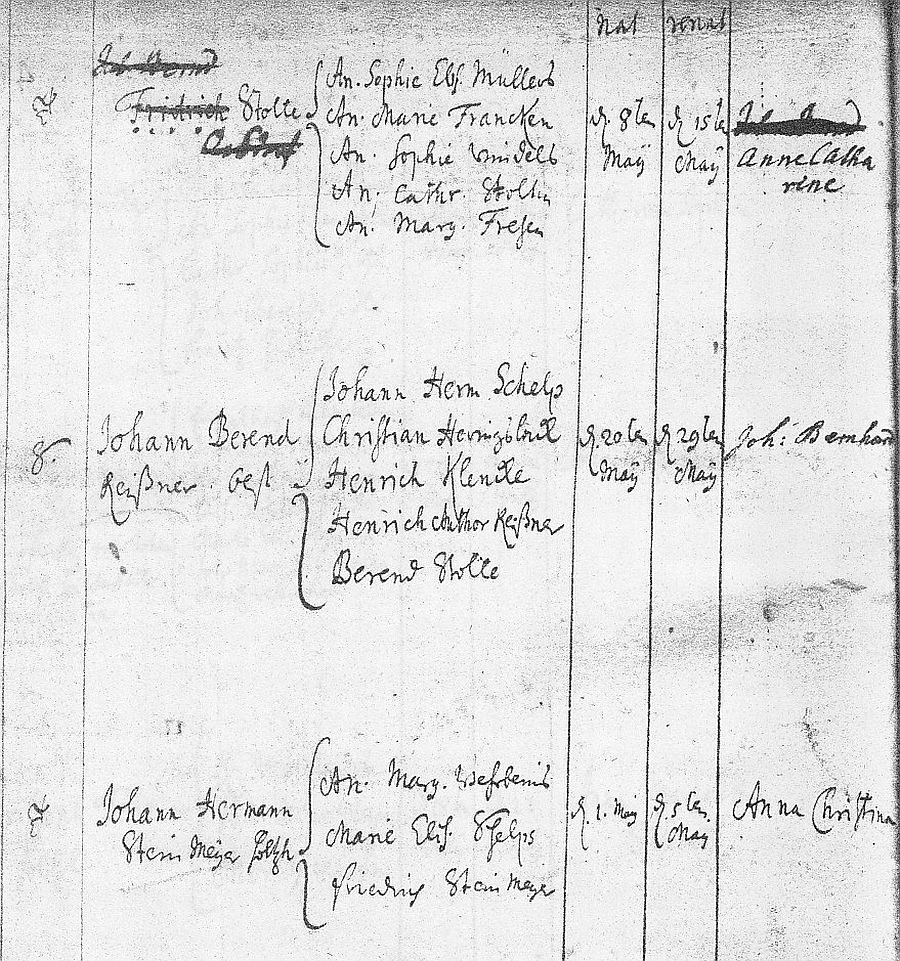 nat
renat
Stolte
An. Sophie Elis. Müllers
An. Marie Francken
An. Sophie
An. Cathr. Stolten
An. Marg. Fresen
d. 8ten
May
d. 15ten
May
Anne Catha
rine
8.
Johann Berend
Reißner
Johann Herm Schelp
Christian
Henrich Klencke
Henrich Anthor Reißner
Berend Stolte
d. 20ten
May
d. 29ten
May
Joh: Bernhard
Johann Hermann
Stein Meyer
An. Marg.
Marie Elis. Schelps
Stein Meyer
d. 1. May
d. 5ten
May
Anna Christina